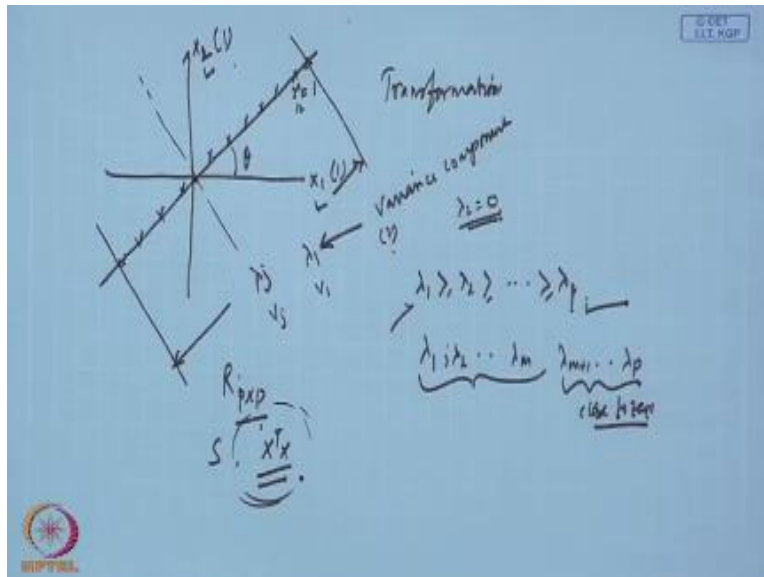 © CET
I.I.T. KGP
x₂ (1)
Transformation
r=0.1
θ
x₁ (1)
Variance component
(2)
λ₂ = 0
λ₁
v₁
λj
vj
λ₁ ≥ λ₂ ≥ ... ≥ λp
λ₁, λ₂ ... λm λm+1 ... λp
close to zero
R p×p
S XᵀX
NPTEL